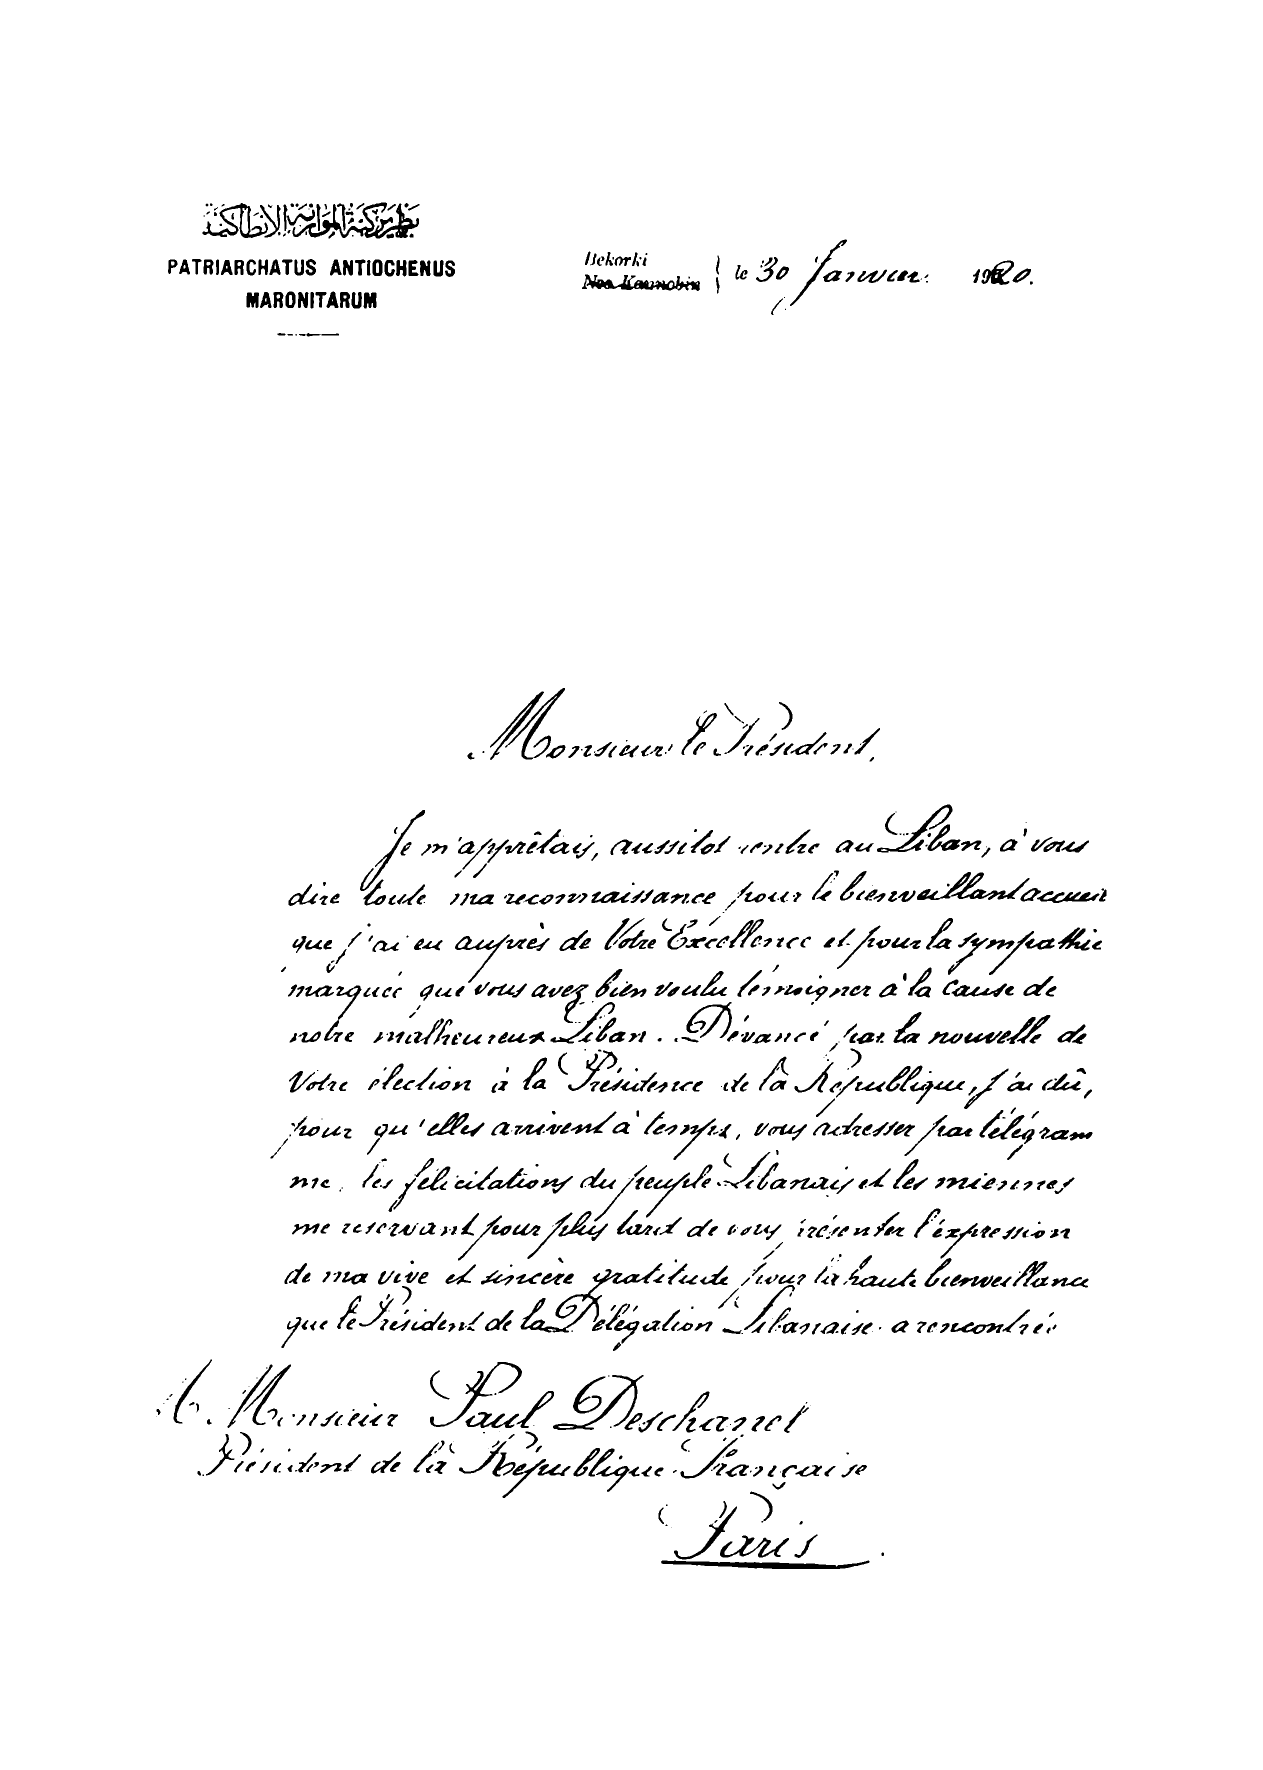 بطريركية الموارنة الانطاكية
PATRIARCHATUS ANTIOCHENUS
MARONITARUM
Bekorki
le 30 Janvier 1920.
Monsieur le Président,
Je m'apprêtais, aussitot rentré au Liban, à vous
dire toute ma reconnaissance pour le bienveillant accueil
que j'ai eu auprès de Votre Excellence et pour la sympathie
marquée que vous avez bien voulu témoigner à la cause de
notre malheureux Liban. Dévancé par la nouvelle de
Votre élection à la Présidence de la République, j'ai dû,
pour qu'elles arrivent à temps, vous adresser par télégram
me, les félicitations du peuple Libanais et les miennes
me reservant pour plus tard de vous présenter l'éxpression
de ma vive et sincère gratitude pour la haute bienveillance
que le Président de la Délégation Libanaise a rencontrée
A Monsieur Paul Deschanel
Président de la République Française
Paris.